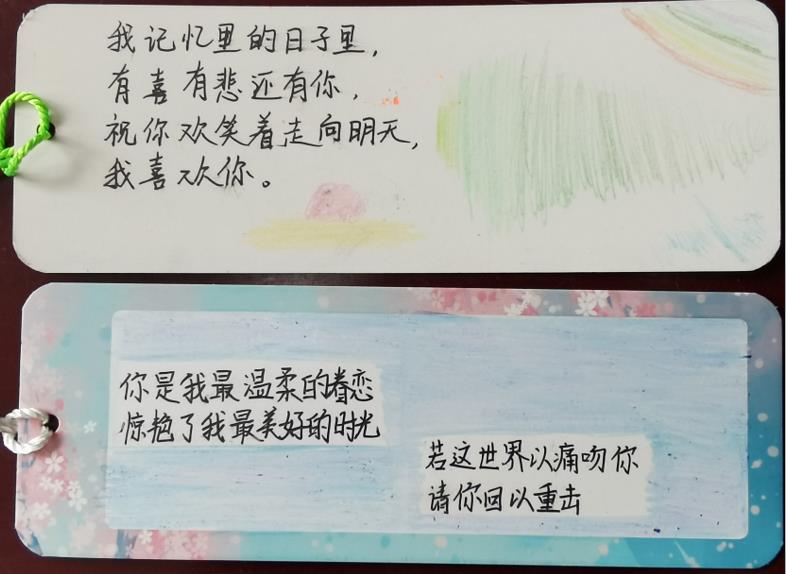 我记忆里的日子里，
有喜有悲还有你，
祝你欢笑着走向明天，
我喜欢你。
你是我最温柔的眷恋
惊艳了我最美好的时光
若这世界以痛吻你
请你回以重击